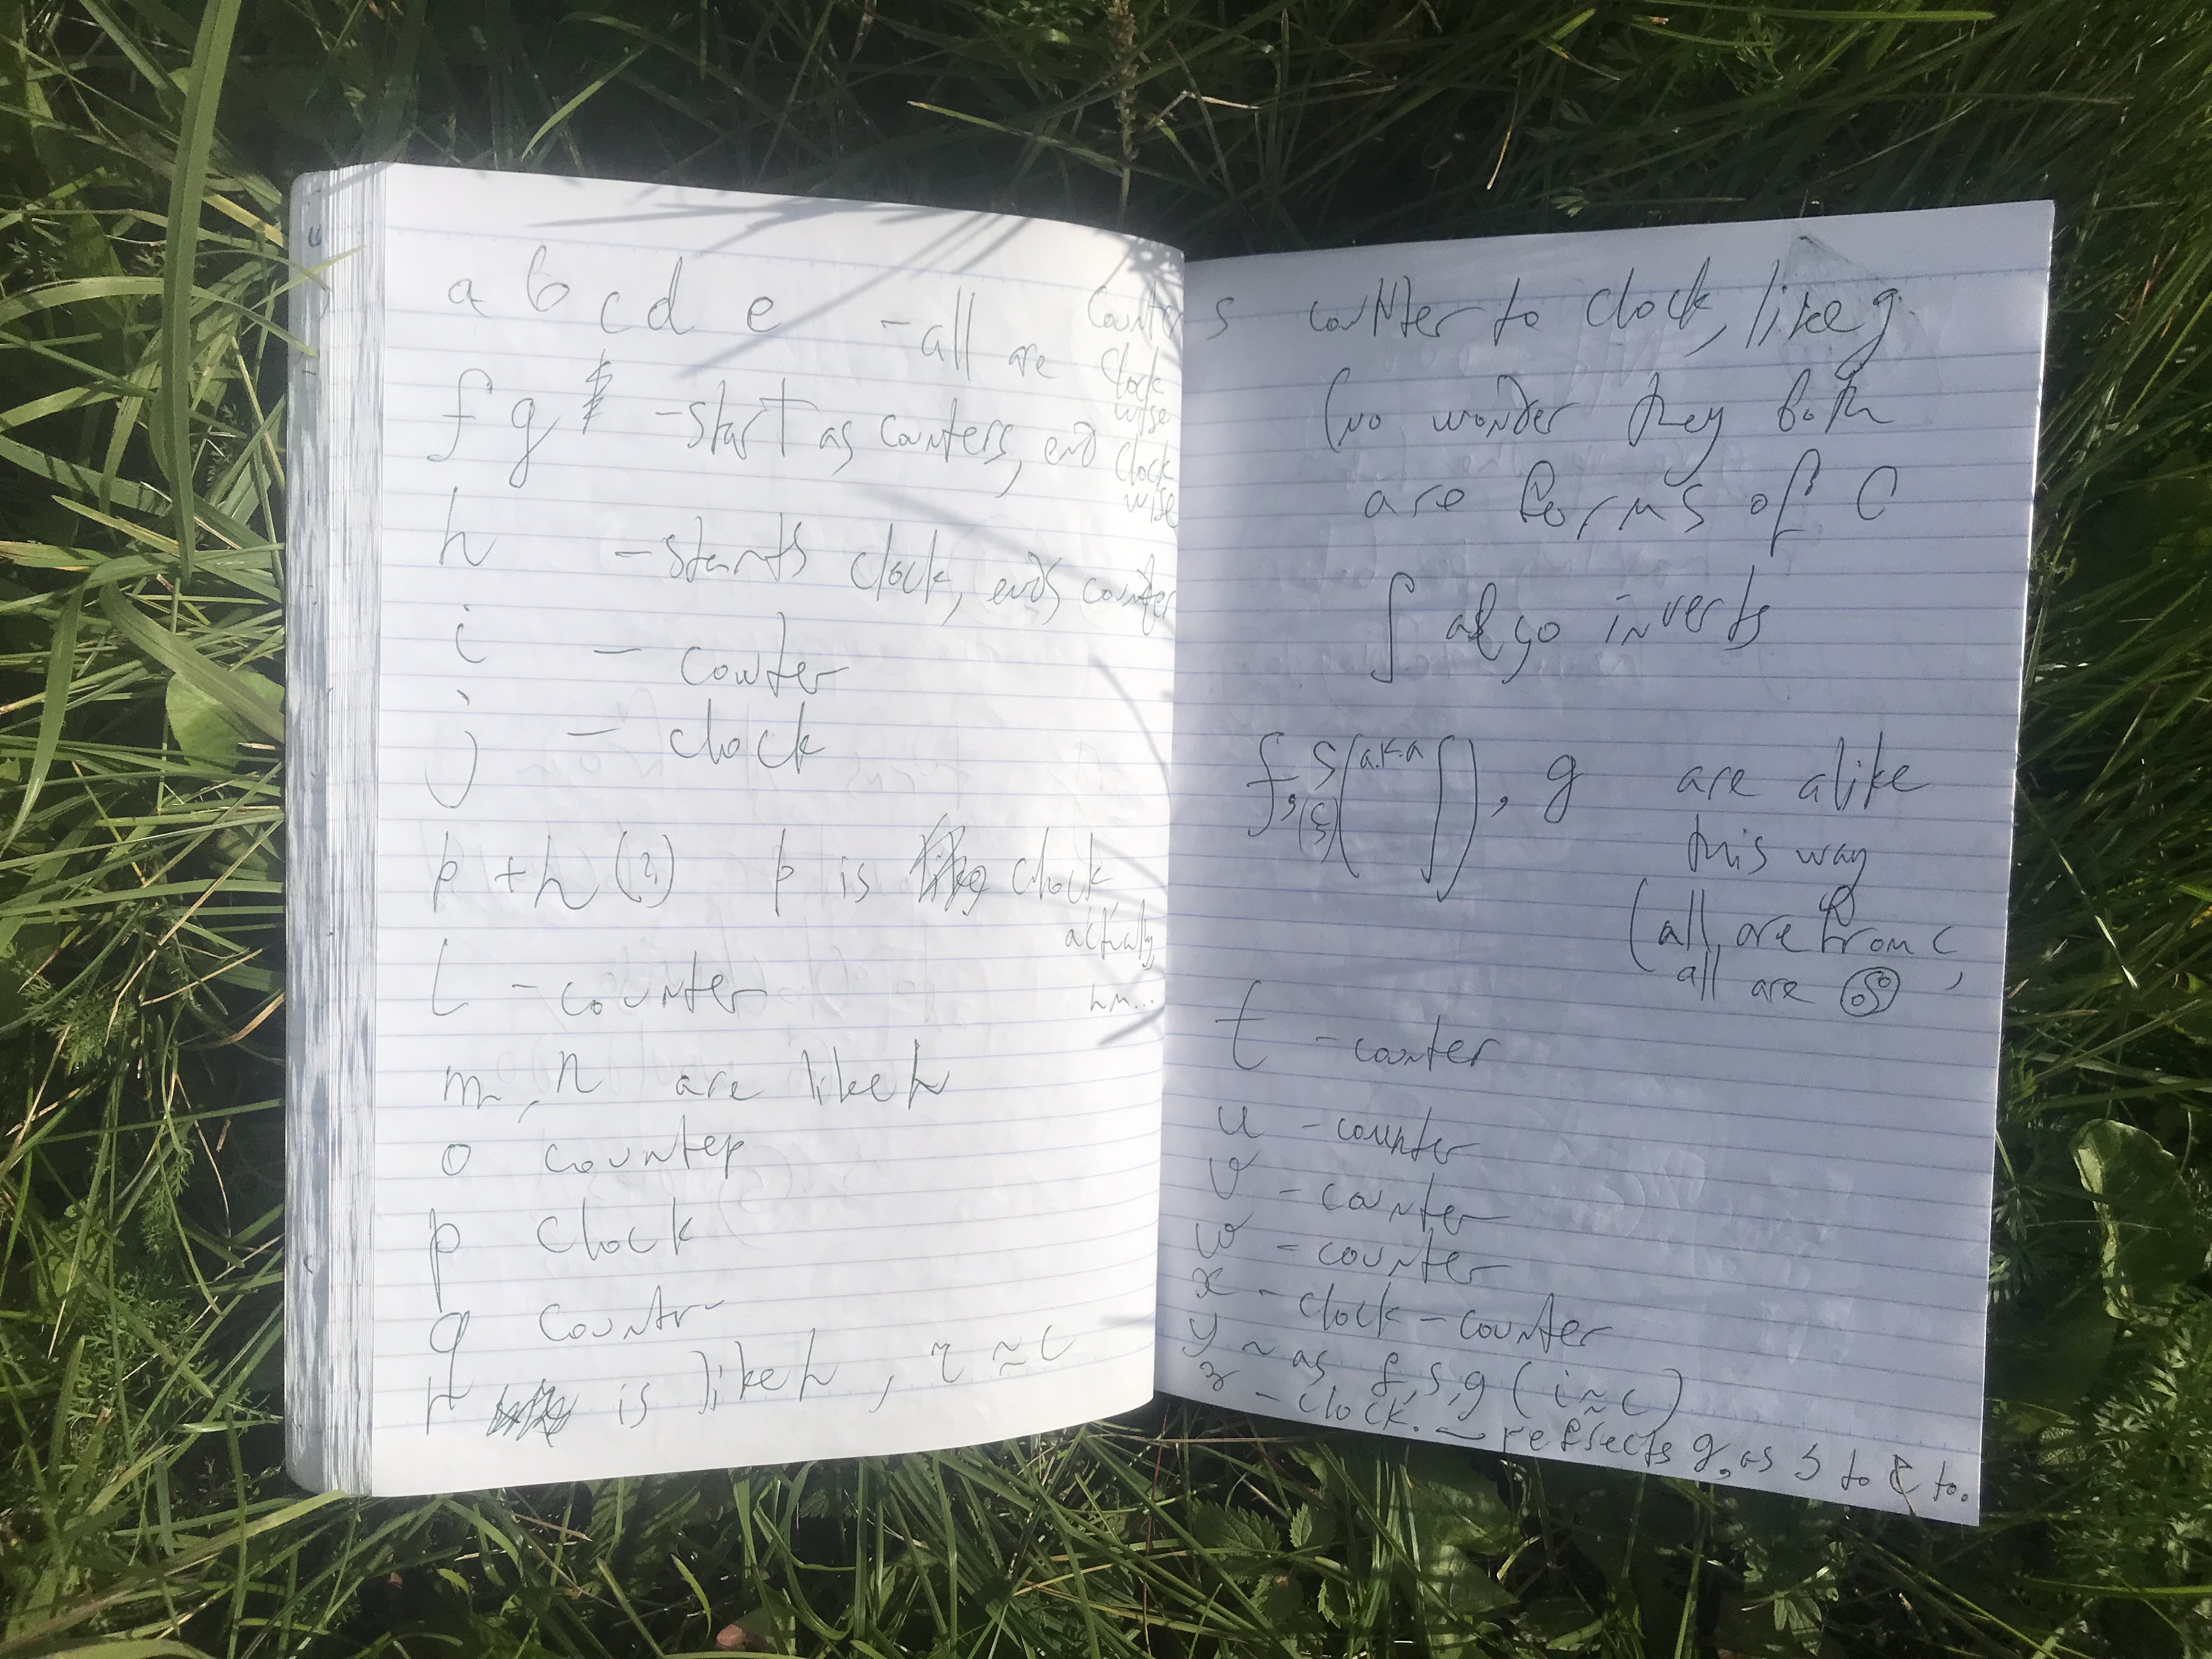 a b c d e - all are counter
clock
wise
f g - start as counters, end clock
wise
h - starts clock, ends counter
i - counter
j - clock
p + h (?) p is clock
actually
hm..
l - counter
m, n are like h
o counter
p clock
q countr
r is like h, r ≈ c
s counter to clock, like g.
(wo wonder they both
are forms of C
∫ also inverts
f, s, g, ∫, g are alike
this way
(all are from c
all are
t - counter
u - counter
v - counter
w - counter
x - clock - counter
y ~ as f, s, g (i ≈ c)
z - clock. - reflects g, as s to f to.